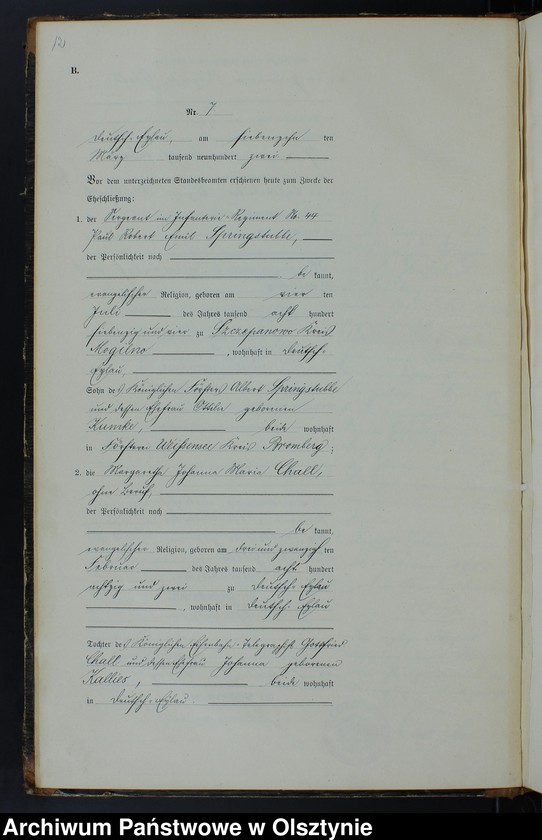 B.
Nr. 7
Deutsch-Eylau, am siebenzehn ten
März tausend neunhundert zwei
Vor dem unterzeichneten Standesbeamten erschienen heute zum Zwecke der
Eheschließung:
1. der Sergeant im Infanterie-Regiment Nr. 44
Paul Robert Emil Springstubbe,
der Persönlichkeit nach
be kannt,
evangelischer Religion, geboren am vier ten
Juli des Jahres tausend acht hundert
siebenzig und vier zu Szczepanowo Kreis
Mogilno, wohnhaft in Deutsch-
Eylau,
Sohn des Königlichen Försters Albert Springstubbe
und dessen Ehefrau Ottilie geborenen
beide wohnhaft
in Försterei Weißensee Kreis Bromberg;
2. die Margarethe Johanna Maria Chall,
ohne Beruf,
der Persönlichkeit nach
be kannt,
evangelischer Religion, geboren am drei und zwanzig ten
Februar des Jahres tausend acht hundert
achtzig und zwei zu Deutsch-Eylau
, wohnhaft in Deutsch-Eylau
Tochter des Königlichen Eisenbahn-Telegraphist Gottfried
Chall und dessen Ehefrau Johanna geborenen
Kallies, beide wohnhaft
in Deutsch-Eylau
Archiwum Państwowe w Olsztynie